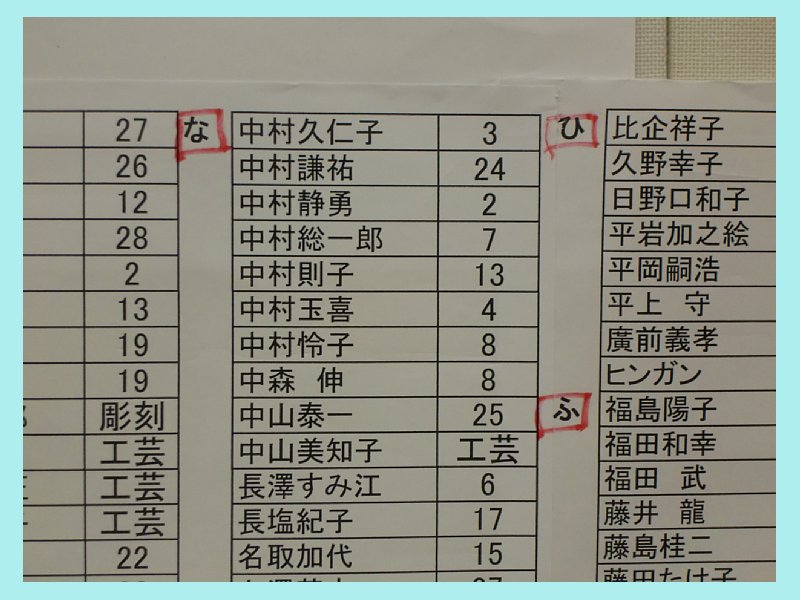 27
26
12
28
2
13
19
19
彫刻
工芸
工芸
工芸
22
な
中村久仁子 3
中村謙祐 24
中村静勇 2
中村総一郎 7
中村則子 13
中村玉喜 4
中村怜子 8
中森 伸 8
中山泰一 25
中山美知子 工芸
長澤すみ江 6
長塩紀子 17
名取加代 15
ひ
比企祥子
久野幸子
日野口和子
平岩加之絵
平岡嗣浩
平上 守
廣前義孝
ヒンガン
ふ
福島陽子
福田和幸
福田 武
藤井 龍
藤島桂二
藤田たけ子